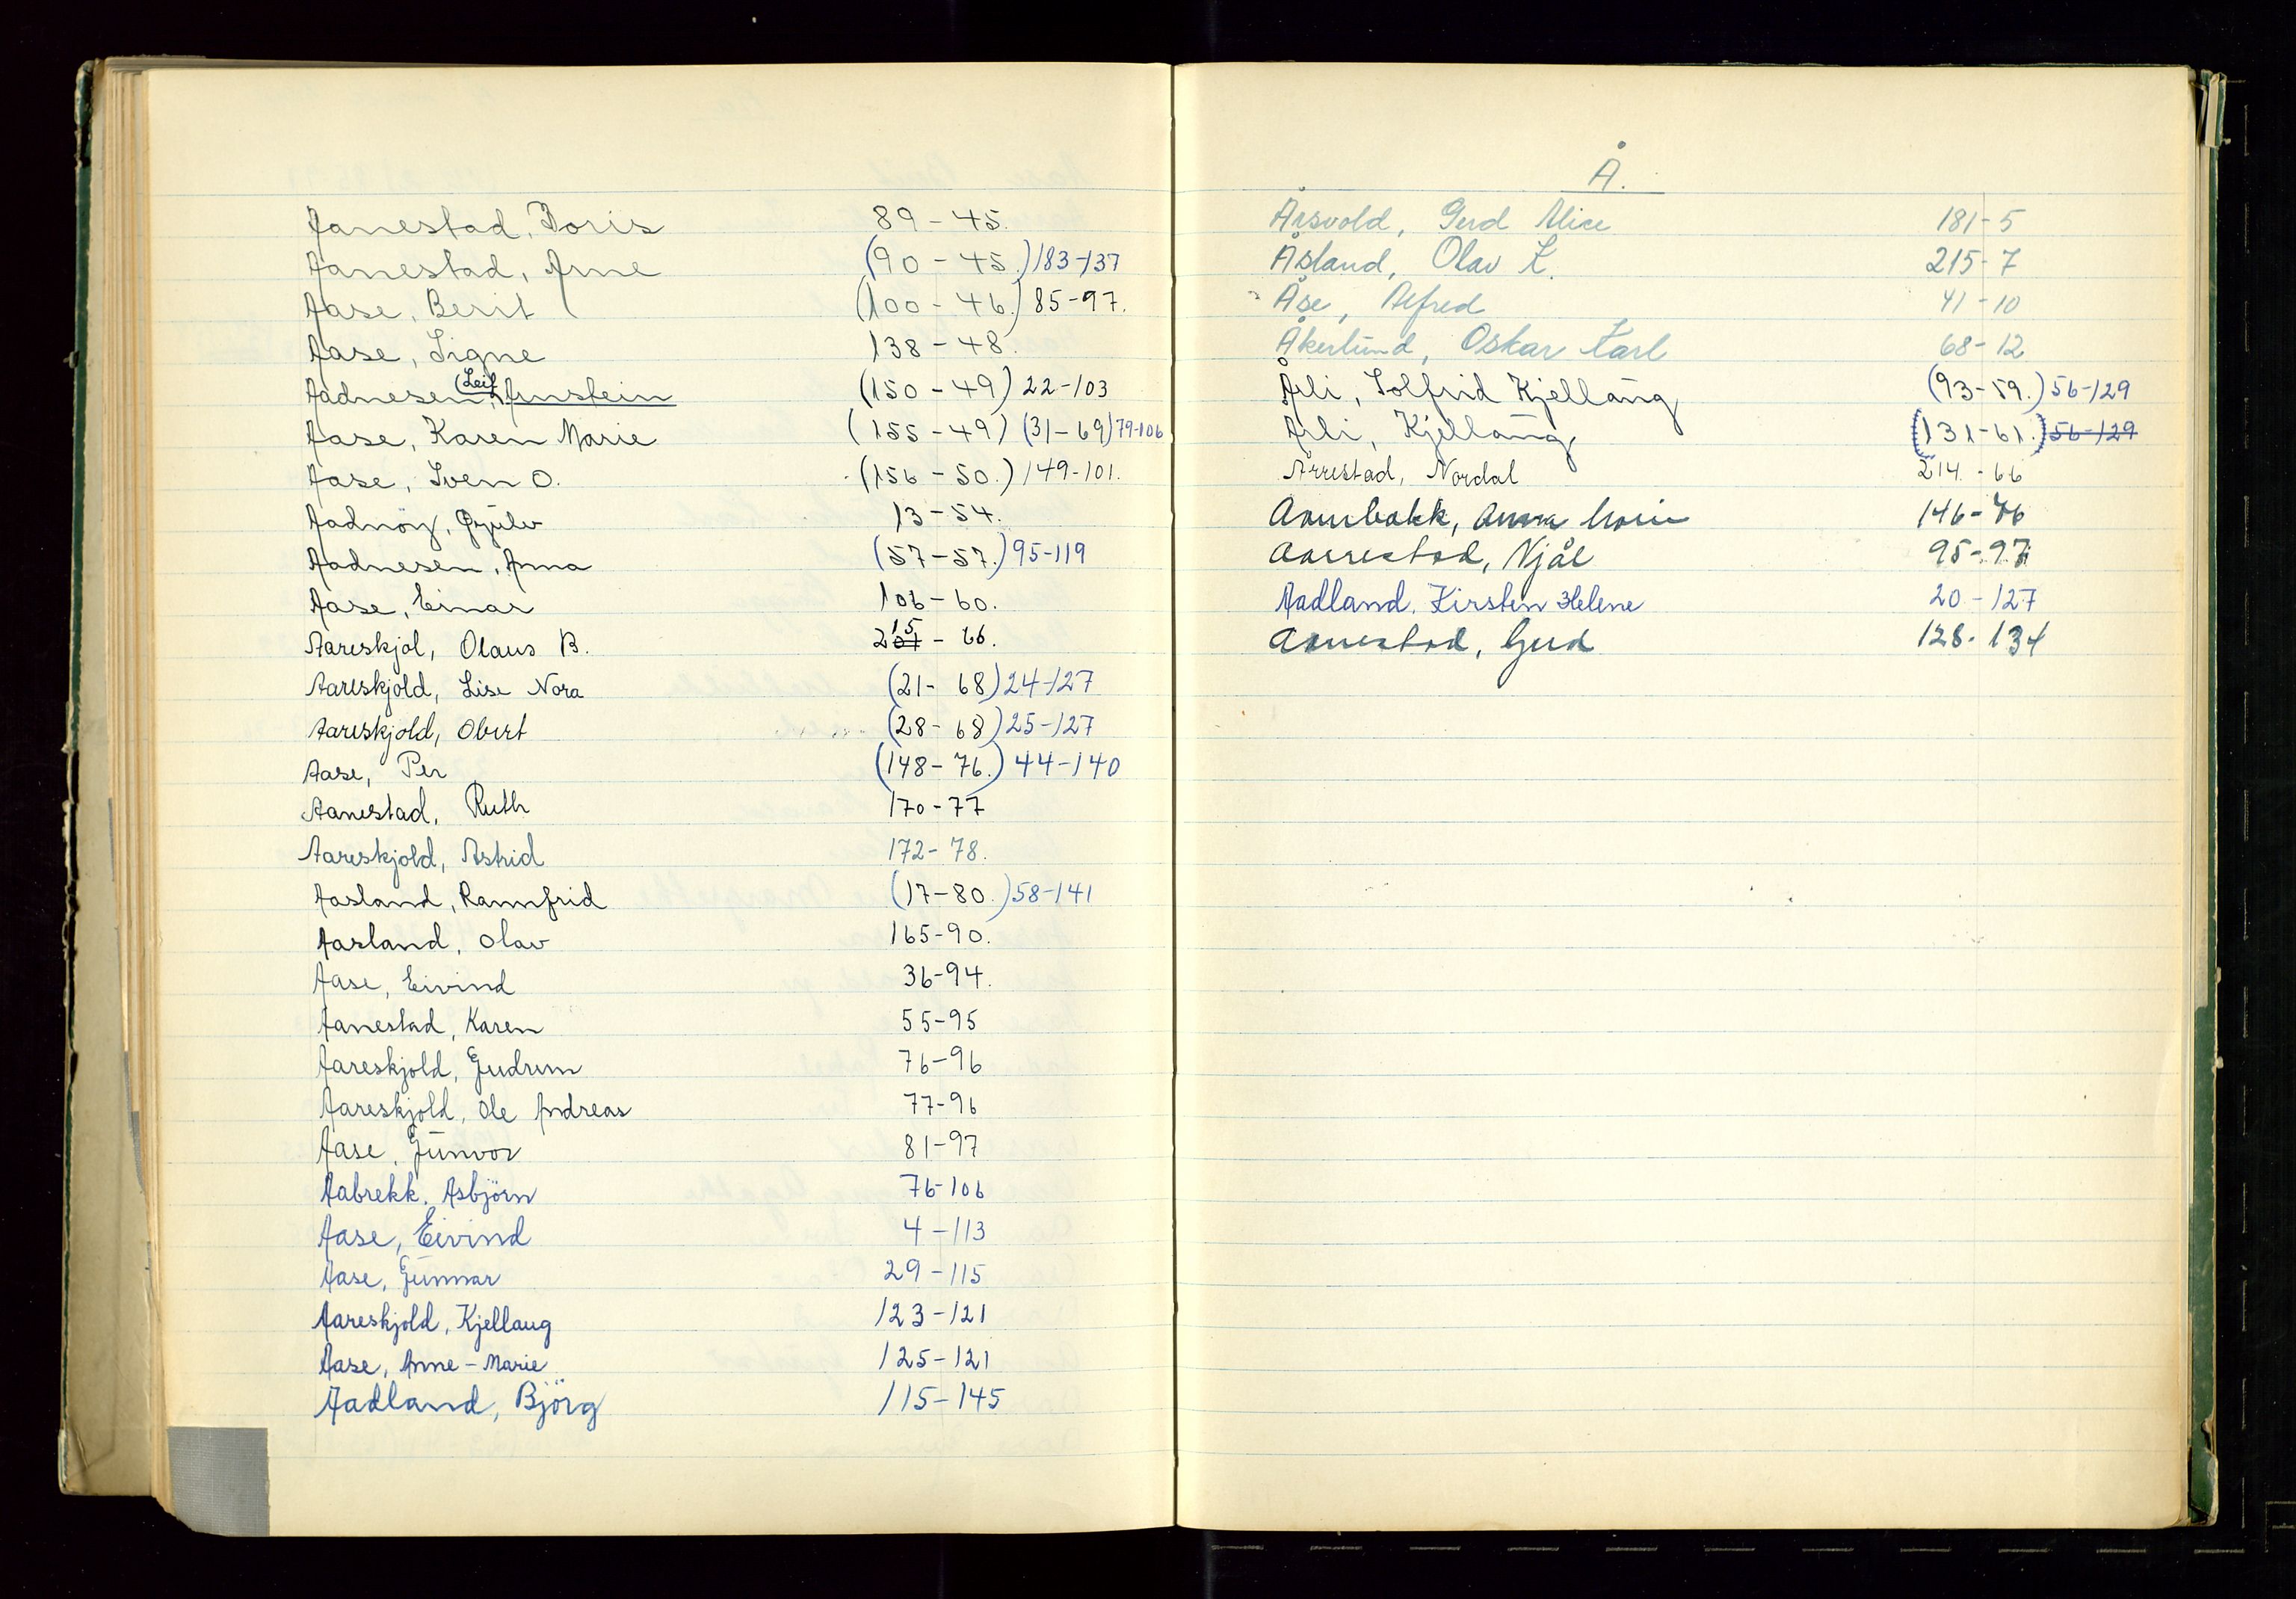 Aanestad, Doris 89 - 45.
Aanestad, Arne (90 - 45.) 183-137
Aase, Berit (100 - 46.) 85-97.
Aase, Signe 138 - 48.
Aadnesen, (Leif) Arnstein (150 - 49) 22-103
Aase, Karen Marie (155 - 49) (31-69) 79-106
Aase, Sven O. (156 - 50.) 149-101.
Aadnöy, Gjulv 13 - 54.
Aadnesen, Anna (57 - 57.) 95-119
Aase, Einar 106 - 60.
Aareskjol, Olaus B. 215 - 66.
Aareskjold, Lise Nora (21 - 68) 24-127
Aareskjold, Obert (28 - 68) 25-127
Aase, Per (148 - 76.) 44-140
Aanestad, Ruth 170 - 77
Aareskjold, Astrid 172 - 78.
Aasland, Rannfrid (17-80.) 58-141
Aasland, Olav 165-90.
Aase, Eivind 36-94.
Aanestad, Karen 55-95
Aareskjold, Gudrun 76-96
Aareskjold, Ole Andreas 77-96
Aase, Gunvor 81-97
Aabrekk, Asbjörn 76-106
Aase, Eivind 4-113
Aase, Gunnar 29-115
Aareskjold, Kjellaug 123-121
Aase, Anne-Marie 125-121
Aadland, Björg 115-145
Å.
Årsvold, Gerd Alice 181-5
Åsland, Olav K. 215-7
Åse, Alfred 41-10
Åkerlund, Oskar Karl 68-12
Årli, Solfrid Kjellaug (93-59.) 56-129
Årli, Kjellaug (131-61.) 56-129
Årrestad, Nordal 214 - 66
Anna Marie 146-76
Aarrestad, Njål 95-97
Aadland, Kirsten Helene 20-127
Aarrestad, Gerd 128-134